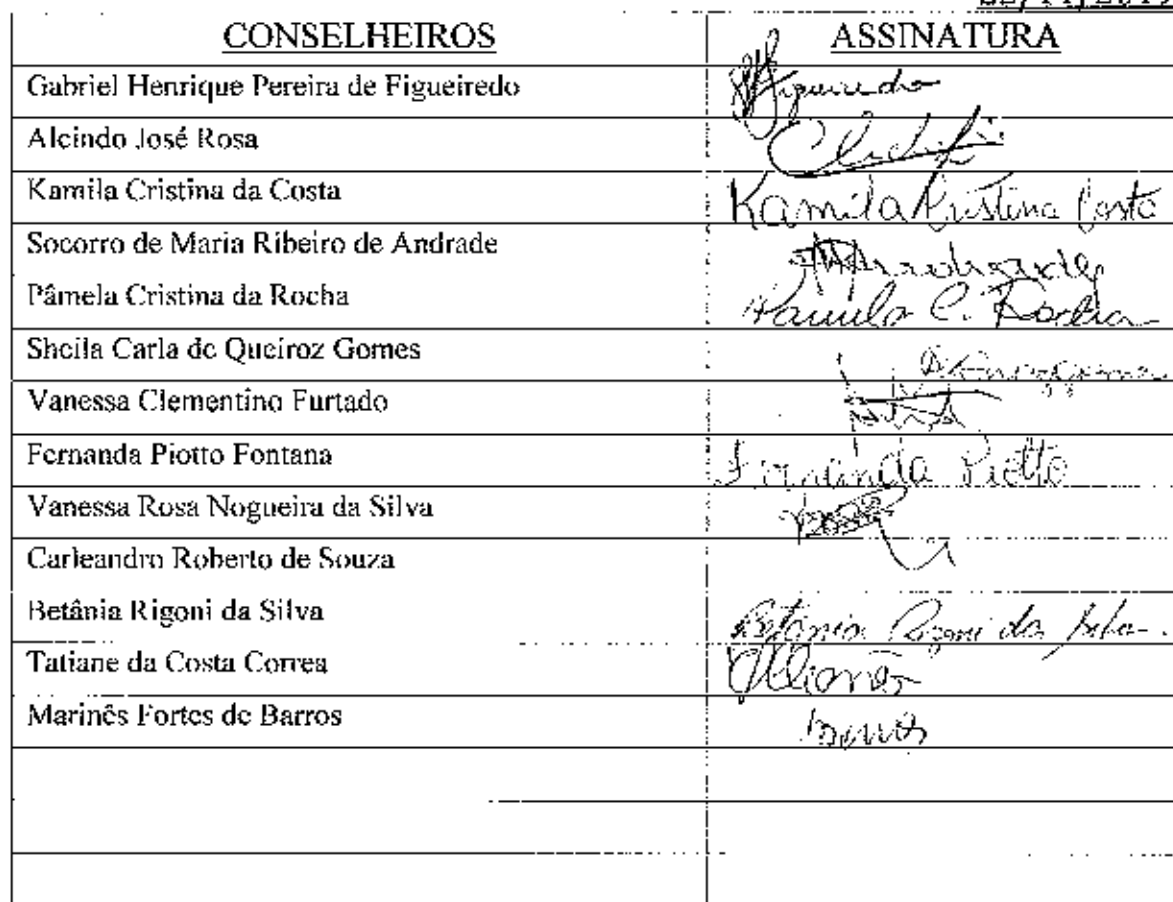 CONSELHEIROS ASSINATURA
Gabriel Henrique Pereira de Figueiredo Figueiredo
Alcindo José Rosa
Kamila Cristina da Costa Kamila Cristina Costa
Socorro de Maria Ribeiro de Andrade
Pâmela Cristina da Rocha Pamela C. Rocha
Sheila Carla de Queiroz Gomes
Vanessa Clementino Furtado
Fernanda Piotto Fontana Fernanda Piotto
Vanessa Rosa Nogueira da Silva
Carleandro Roberto de Souza
Betânia Rigoni da Silva Betânia Rigoni da Silva
Tatiane da Costa Correa
Marinês Fortes de Barros Barros